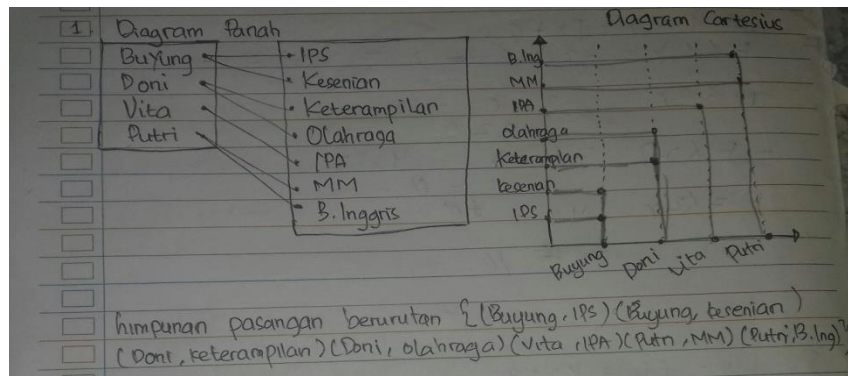 1 Diagram Panah
Buyung
Doni
Vita
Putri
IPS
Kesenian
Keterampilan
Olahraga
IPA
MM
B. Inggris
Diagram Cartesius
B.Ing
MM
IPA
olahraga
Keterampilan
kesenian
IPS
Buyung Doni Vita Putri
himpunan pasangan berurutan {(Buyung, IPS) (Buyung, kesenian)
(Doni, keterampilan) (Doni, olahraga) (Vita, IPA) (Putri, MM) (Putri, B.Ing)}